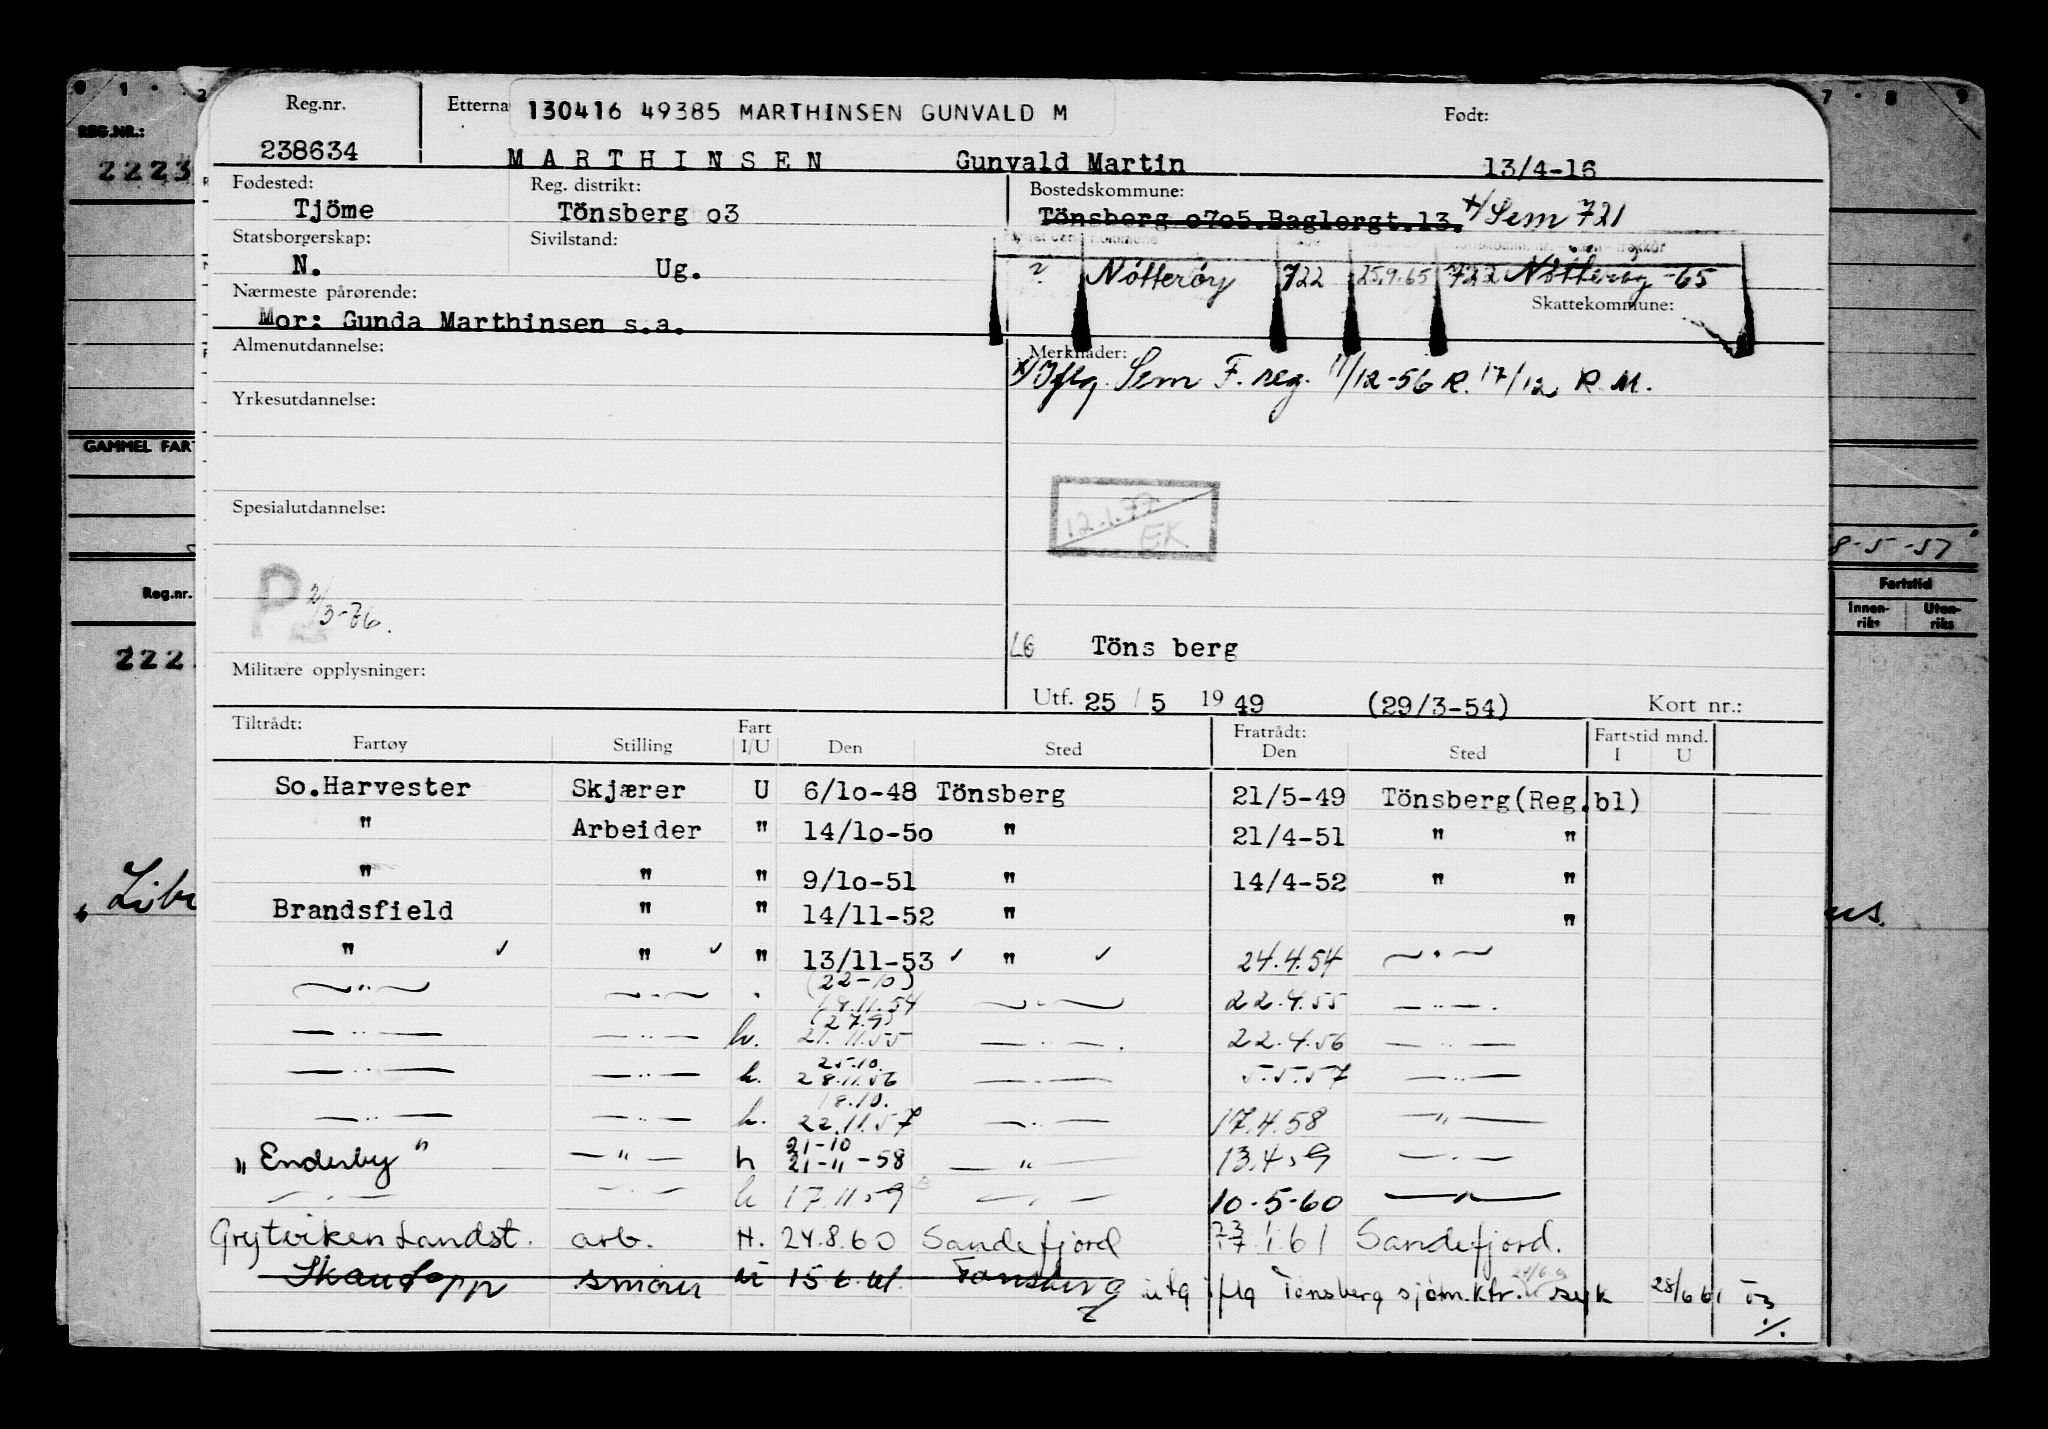 REG.NR.:
2223
GAMMEL FAR
Reg.nr.
222
8-5-57
Fartstid
Innen-
riks
Uten-
riks
Reg.nr. Etterna 130416 49385 MARTHINSEN GUNVALD M Født:
238634 MARTHINSEN Gunvald Martin 13/4-16
Fødested: Reg. distrikt: Bostedskommune:
Tjöme Tönsberg o3 Tönsberg o7o5.Baglergt.13. x/Sem 721
Statsborgerskap: Sivilstand:
N. Ug. Nötterøy 722 25.9.65 722 Nötterøy -65
Nærmeste pårørende: Skattekommune:
Mor: Gunda Marthinsen s.a.
Almenutdannelse: Merknader:
x/Iflg. Sem F. reg. 11/12-56 R. 17/12 R.M.
Yrkesutdannelse:
Spesialutdannelse:
12.1.77
EK
P 2/3-76.
L6 Töns berg
Militære opplysninger:
Utf. 25 / 5 19 49 (29/3-54) Kort nr.:
Tiltrådt: Fart Fratrådt: Fartstid mnd.
Fartøy Stilling I/U Den Sted Den Sted I U
So.Harvester Skjærer U 6/10-48 Tönsberg 21/5-49 Tönsberg(Reg.bl)
" Arbeider " 14/10-50 " 21/4-51 " "
" " " 9/10-51 " 14/4-52 " "
Brandsfield " " 14/11-52 " "
" ✓ " ✓ " 13/11-53 ✓ " ✓ 24.4.54 — " —
(22-10)
— " — — " — " 18.11.54 — " — 22.4.55 — " —
(27.9)
— " — — " — h. 21.11.55 — " — 22.4.56 — " —
25.10.
— " — — " — h. 28.11.56 — " — 5.5.57 — " —
18.10.
— " — — " — h. 22.11.57 — " — 17.4.58 — " —
21-10
"Enderby" — " — h 21-11-58 — " — 13.4.59 — " —
— " — — " — h 17.11.59 — " — 10-5-60 — " —
Grytviken Landst. arb. H. 24.8.60 Sandefjord 23
17.1.61 Sandefjord.
smører 15.6.61 Tønsberg utg iflg Tönsberg sjöm.ktr. syk 28/6 61